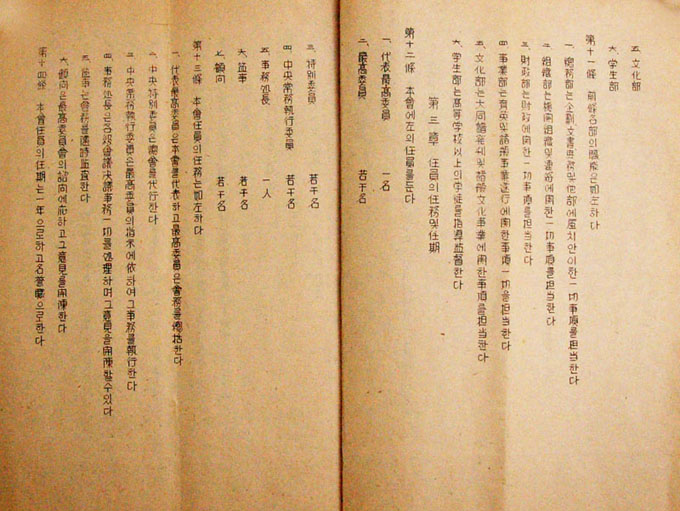 五、文化部
六、学生部
第十一條 前條各部의 職能은 如左하다
一、總務部는 企劃、文書、庶務 및 他部에 屬치 안이한 一切事項을 担当한다
二、組織部는 機関組織 및 連絡에 関한 一切事項을 担当한다
三、財政部는 財政에 関한 一切事項을 担当한다
四、事業部는 育英 및 諸般事業遂行에 関한 事項一切을 担当한다
五、文化部는 大同譜發刊 및 諸般文化事業에 関한 事項을 担当한다
六、学生部는 高等学校以上의 学徒를 指導監督한다
第三章 任員의 任務 및 任期
第十二條 本會에 左의 任員을 둔다
一、代表最高委員 一名
二、最高委員 若干名
三、特別委員 若干名
四、中央常務執行委員 若干名
五、事務処長 一人
六、監事 若干名
七、顧問 若干名
第十三條 本會任員의 任務는 如左하다
一、代表最高委員은 本會를 代表하고 最高委員은 會務를 總括한다
二、中央特別委員은 總會를 代行한다
三、中央常務執行委員은 最高委員의 指示에 依하여 그 事務를 執行한다
四、事務処長은 各級會議決議事務一切를 処理하며 그 意見을 開陳할 수 있다
五、監事는 會務를 隨時監査한다
六、顧問은 最高委員會의 諮問에 応하고 그 意見을 開陳한다
第十四條 本會任員의 任期는 一年으로 하고 名誉職으로 한다